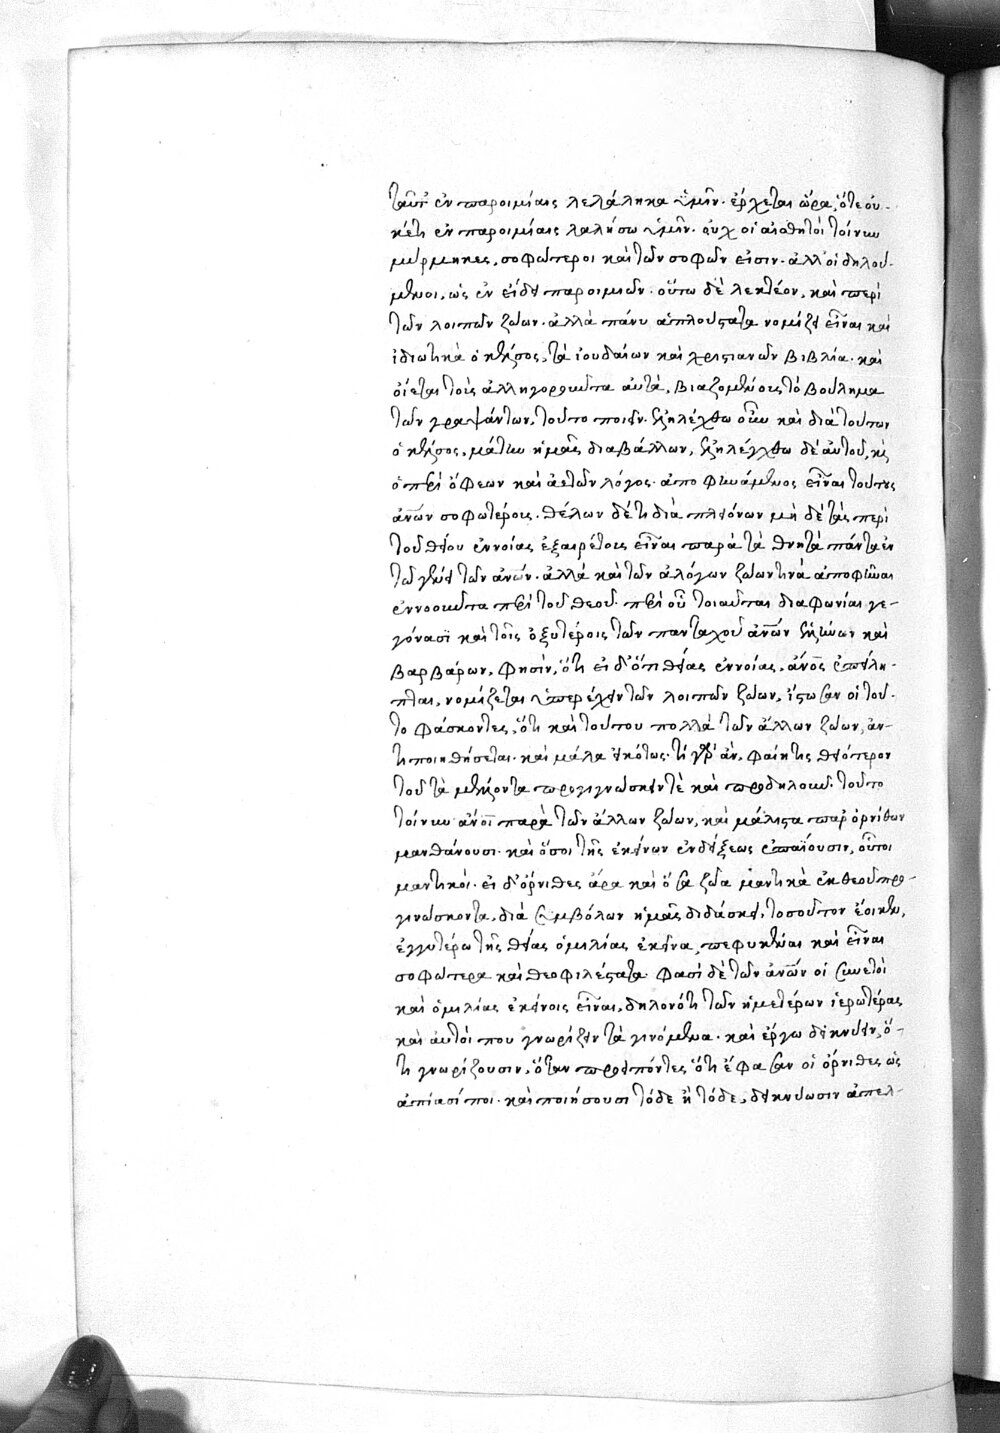 ταῦτ' ἐν παροιμίαις λελάληκα ὑμῖν· ἔρχεται ὥρα, ὅτε οὐ-
κέτι ἐν παροιμίαις λαλήσω ὑμῖν· οὐχ οἱ αἰσθητοὶ τοίνυν
μύρμηκες, σοφώτεροι καὶ τῶν σοφῶν εἰσιν· ἀλλ' οἱ δηλού-
μενοι, ὡς ἐν εἴδει παροιμιῶν· οὕτω δὲ λεκτέον, καὶ περὶ
τῶν λοιπῶν ζώων· ἀλλὰ πάνυ ἁπλούστατα νομίζει εἶναι καὶ
ἰδιωτικὰ ὁ κέλσος, τὰ ἰουδαίων καὶ χριστιανῶν βιβλία· καὶ
οἴεται τοὺς ἀλληγοροῦντας αὐτὰ, βιαζομένους τὸ βούλημα
τῶν γραψάντων, τοῦτο ποιεῖν· ἐληλέγχθω οὖν καὶ διὰ τούτων
ὁ κέλσος, μάτην ἡμᾶς διαβάλλων, ἐληλέγχθω δὲ αὐτοῦ, καὶ
ὁ περὶ ὄφεων καὶ ἀετῶν λόγος· ἀποφηνάμενος εἶναι τούτους
ἀνῶν σοφωτέρους· θέλων δ' ἔτι διὰ πλειόνων μὴ δὲ τὰς περὶ
τοῦ θείου ἐννοίας ἐξαιρέτους εἶναι παρὰ τὰ θνητὰ πάντα ἐν
τῶ γένει τῶν ἀνῶν· ἀλλὰ καὶ τῶν ἀλόγων ζώων τινὰ ἀποφῆναι
ἐννοοῦντα περὶ τοῦ θεοῦ· περὶ οὗ τοιαῦται διαφωνίαι γε-
γόνασι καὶ τοῖς ὀξυτέροις τῶν πανταχοῦ ἀνῶν ἑλλήνων καὶ
βαρβάρων, φησὶν, ὅτι εἰ δ' ὅτι θείας ἐννοίας, ἄνος ἐπείλη-
πται, νομίζεται ὑπερέχειν τῶν λοιπῶν ζώων, ἴστωσαν οἱ τοῦ-
το φάσκοντες, ὅτι καὶ τούτου πολλὰ τῶν ἄλλων ζώων, ἀν-
τιποιηθήσεται· καὶ μάλα εἰκότως· τί γὰρ ἂν, φαίη τις θειότερον
τοῦ τὰ μέλλοντα προγιγνώσκειν τὲ καὶ προδηλοῦν· τοῦτο
τοίνυν ἄνοι παρὰ τῶν ἄλλων ζώων, καὶ μάλιστα παρ' ὀρνίθων
μανθάνουσι· καὶ ὅσοι τῆς ἐκείνων ἐνδείξεως ἐπαΐουσιν, οὗτοι
μαντικοί· εἰ δ' ὄρνιθες ἄρα καὶ ὅσα ζῶα μαντικὰ ἐκ θεοῦ προ-
γινώσκοντα, διὰ συμβόλων ἡμᾶς διδάσκει, τοσοῦτον ἔοικεν,
ἐγγυτέρω τῆς θείας ὁμιλίας ἐκεῖνα, πεφυκέναι καὶ εἶναι
σοφώτερα καὶ θεοφιλέστατα· φασὶ δὲ τῶν ἀνῶν οἱ συνετοὶ
καὶ ὁμιλίας ἐκείνοις εἶναι, δηλονότι τῶν ἡμετέρων ἱερωτέρας
καὶ αὐτοί που γνωρίζειν τὰ γινόμενα· καὶ ἔργω δεικνύειν, ὅ-
τι γνωρίζουσιν, ὅταν προειπόντες, ὅτι ἔφασαν οἱ ὄρνιθες ὡς
ἀπίασί ποι· καὶ ποιήσουσι τόδε ἢ τόδε, δεικνύωσιν ἀπελ-